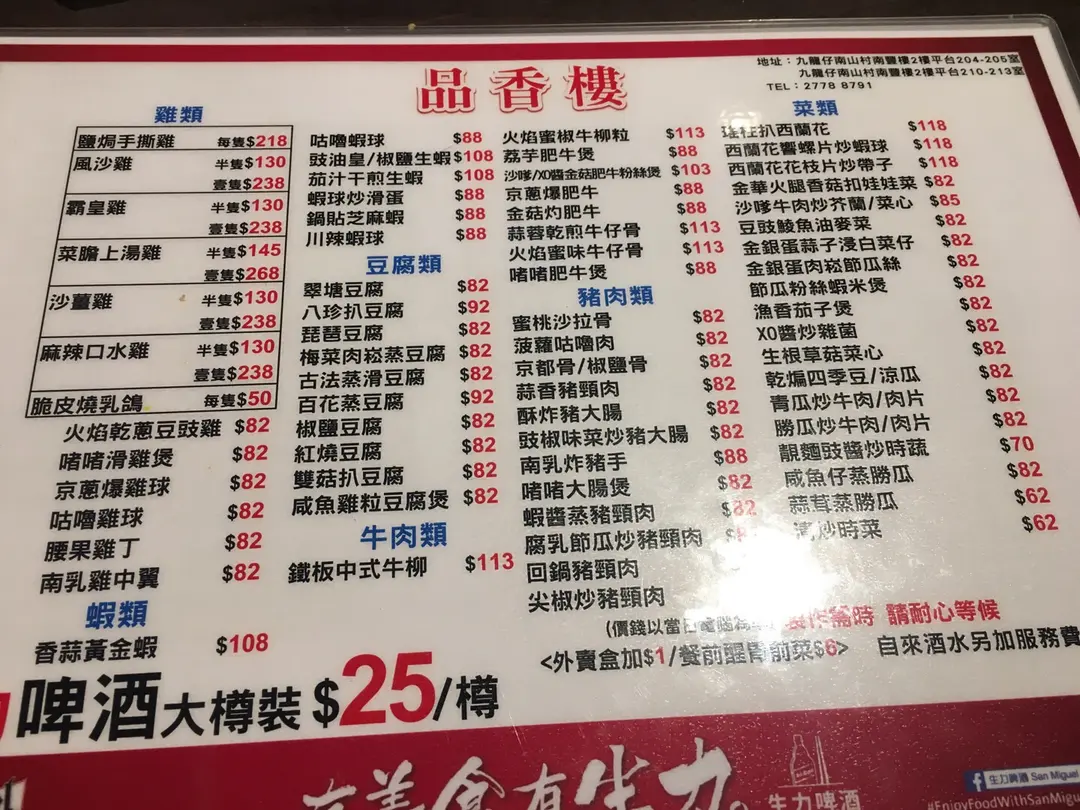 品香樓
地址：九龍仔南山村南豐樓2樓平台204-205室
九龍仔南山村南豐樓2樓平台210-213室
TEL：2778 8791
雞類
鹽焗手撕雞 每隻$218
風沙雞 半隻$130
壹隻$238
霸皇雞 半隻$130
壹隻$238
菜膽上湯雞 半隻$145
壹隻$268
沙薑雞 半隻$130
壹隻$238
麻辣口水雞 半隻$130
壹隻$238
脆皮燒乳鴿 每隻$50
火焰乾蔥豆豉雞 $82
啫啫滑雞煲 $82
京蔥爆雞球 $82
咕嚕雞球 $82
腰果雞丁 $82
南乳雞中翼 $82
蝦類
香蒜黃金蝦 $108
咕嚕蝦球 $88
豉油皇/椒鹽生蝦 $108
茄汁干煎生蝦 $108
蝦球炒滑蛋 $88
鍋貼芝麻蝦 $88
川辣蝦球 $88
豆腐類
翠塘豆腐 $82
八珍扒豆腐 $92
琵琶豆腐 $82
梅菜肉崧蒸豆腐 $82
古法蒸滑豆腐 $82
百花蒸豆腐 $92
椒鹽豆腐 $82
紅燒豆腐 $82
雙菇扒豆腐 $82
咸魚雞粒豆腐煲 $82
牛肉類
鐵板中式牛柳 $113
火焰蜜椒牛柳粒 $113
荔芋肥牛煲 $88
沙嗲/XO醬金菇肥牛粉絲煲 $103
京蔥爆肥牛 $88
金菇灼肥牛 $88
蒜蓉乾煎牛仔骨 $113
火焰蜜味牛仔骨 $113
啫啫肥牛煲 $88
豬肉類
蜜桃沙拉骨 $82
菠蘿咕嚕肉 $82
京都骨/椒鹽骨 $82
蒜香豬頸肉 $82
酥炸豬大腸 $82
豉椒味菜炒豬大腸 $82
南乳炸豬手 $88
啫啫大腸煲 $82
蝦醬蒸豬頸肉 $82
腐乳節瓜炒豬頸肉
回鍋豬頸肉
尖椒炒豬頸肉
菜類
瑤柱扒西蘭花 $118
西蘭花響螺片炒蝦球 $118
西蘭花花枝片炒帶子 $118
金華火腿香菇扣娃娃菜 $82
沙嗲牛肉炒芥蘭/菜心 $85
豆豉鯪魚油麥菜 $82
金銀蛋蒜子浸白菜仔 $82
金銀蛋肉崧節瓜絲 $82
節瓜粉絲蝦米煲 $82
漁香茄子煲 $82
XO醬炒雜菌 $82
生根草菇菜心 $82
乾煸四季豆/涼瓜 $82
青瓜炒牛肉/肉片 $82
勝瓜炒牛肉/肉片 $82
靚麵豉醬炒時蔬 $70
咸魚仔蒸勝瓜 $82
蒜茸蒸勝瓜 $62
清炒時菜 $62
(價錢以當日電腦為準) 製作需時 請耐心等候
<外賣盒加$1/餐前醒胃前菜$6> 自來酒水另加服務費
啤酒大樽裝$25/樽
有美食有生力。
生力啤酒
生力啤酒 San Miguel
#EnjoyFoodWithSanMigu